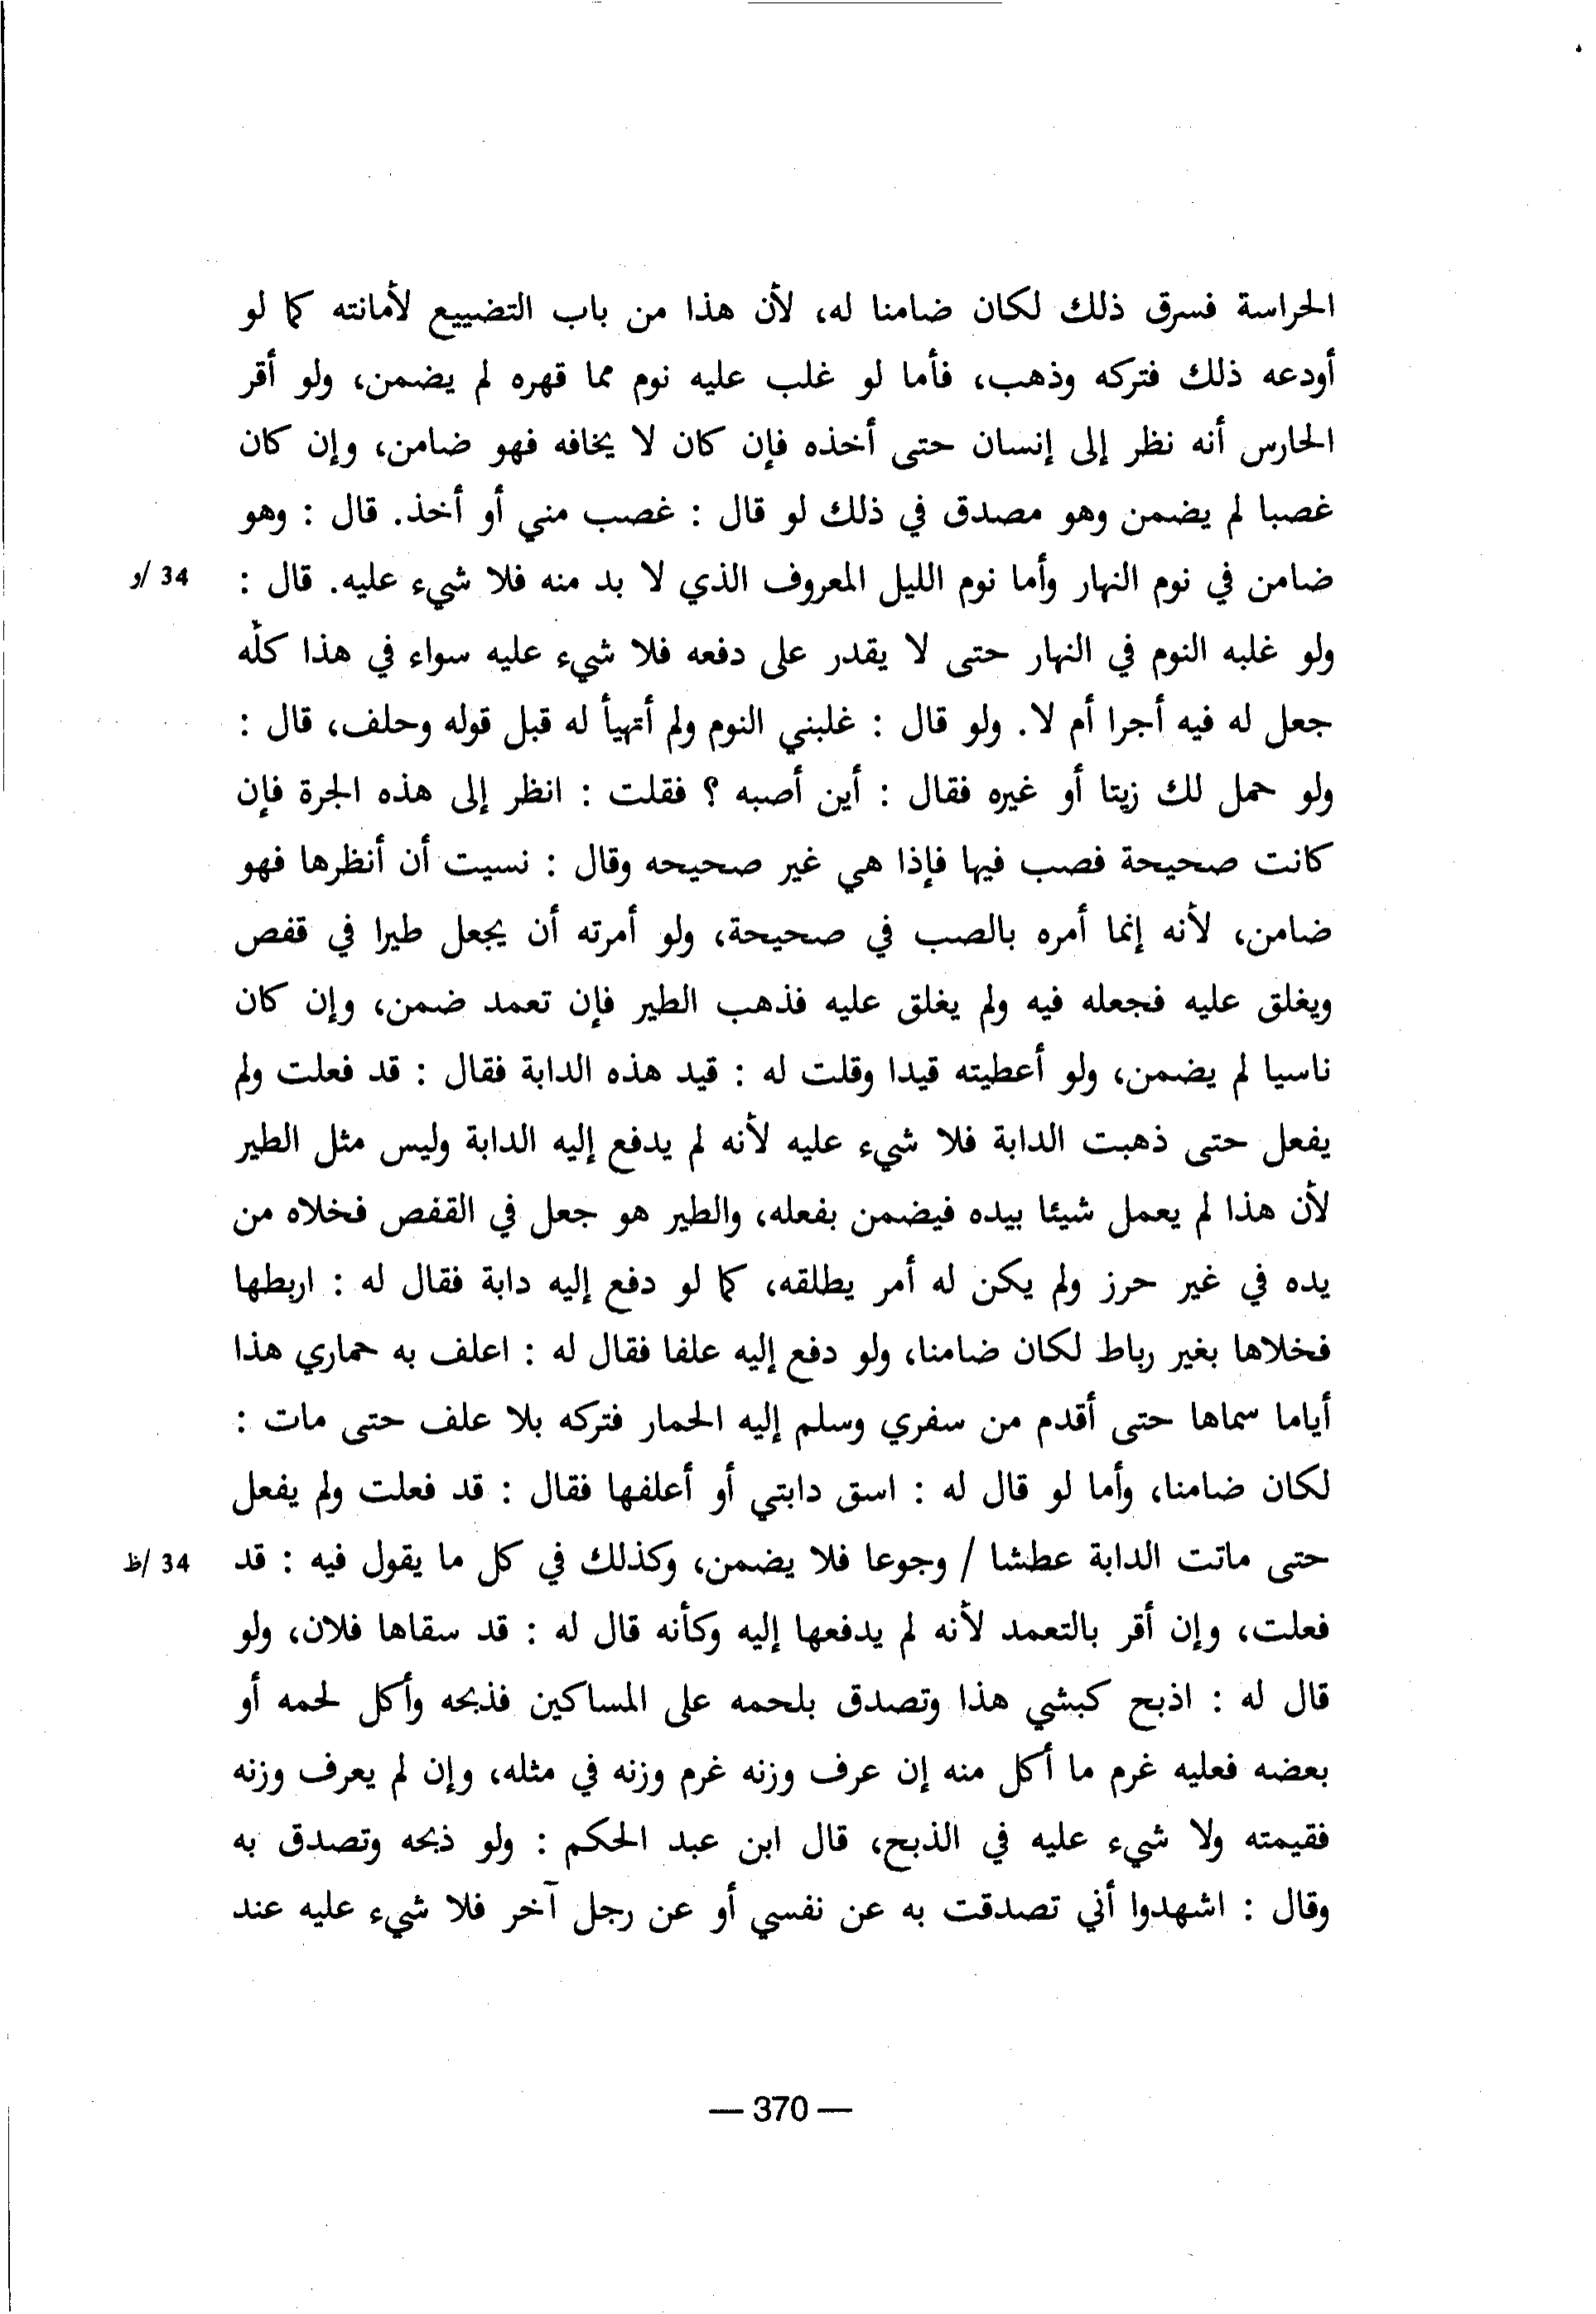 الحراسة فسرق ذلك لكان ضامنا له، لأن هذا من باب التضييع لأمانته كما لو
أودعه ذلك فتركه وذهب، فأما لو غلب عليه نوم مما قهره لم يضمن، ولو أقر
الحارس أنه نظر إلى إنسان حتى أخذه فإن كان لا يخافه فهو ضامن، وإن كان
غصبا لم يضمن وهو مصدق في ذلك لو قال : غصب مني أو أخذ. قال : وهو
ضامن في نوم النهار وأما نوم الليل المعروف الذي لا بد منه فلا شيء عليه. قال :
34 /و
ولو غلبه النوم في النهار حتى لا يقدر على دفعه فلا شيء عليه سواء في هذا كلّه
جعل له فيه أجرا أم لا. ولو قال : غلبني النوم ولم أتهيأ له قبل قوله وحلف، قال :
ولو حمل لك زيتا أو غيره فقال : أين أصبه ؟ فقلت : انظر إلى هذه الجرة فإن
كانت صحيحة فصب فيها فإذا هي غير صحيحه وقال : نسيت أن أنظرها فهو
ضامن، لأنه إنما أمره بالصب في صحيحة، ولو أمرته أن يجعل طيرا في قفص
ويغلق عليه فجعله فيه ولم يغلق عليه فذهب الطير فإن تعمد ضمن، وإن كان
ناسيا لم يضمن، ولو أعطيته قيدا وقلت له : قيد هذه الدابة فقال : قد فعلت ولم
يفعل حتى ذهبت الدابة فلا شيء عليه لأنه لم يدفع إليه الدابة وليس مثل الطير
لأن هذا لم يعمل شيئا بيده فيضمن بفعله، والطير هو جعل في القفص فخلاه من
يده في غير حرز ولم يكن له أمر يطلقه، كما لو دفع إليه دابة فقال له : اربطها
فخلاها بغير رباط لكان ضامنا، ولو دفع إليه علفا فقال له : اعلف به حماري هذا
أياما سماها حتى أقدم من سفري وسلم إليه الحمار فتركه بلا علف حتى مات :
لكان ضامنا، وأما لو قال له : اسق دابتي أو أعلفها فقال : قد فعلت ولم يفعل
حتى ماتت الدابة عطشا / وجوعا فلا يضمن، وكذلك في كل ما يقول فيه : قد
34 /ظ
فعلت، وإن أقر بالتعمد لأنه لم يدفعها إليه وكأنه قال له : قد سقاها فلان، ولو
قال له : اذبح كبشي هذا وتصدق بلحمه على المساكين فذبحه وأكل لحمه أو
بعضه فعليه غرم ما أكل منه إن عرف وزنه غرم وزنه في مثله، وإن لم يعرف وزنه
فقيمته ولا شيء عليه في الذبح، قال ابن عبد الحكم : ولو ذبحه وتصدق به
وقال : اشهدوا أني تصدقت به عن نفسي أو عن رجل آخر فلا شيء عليه عند
— 370 —